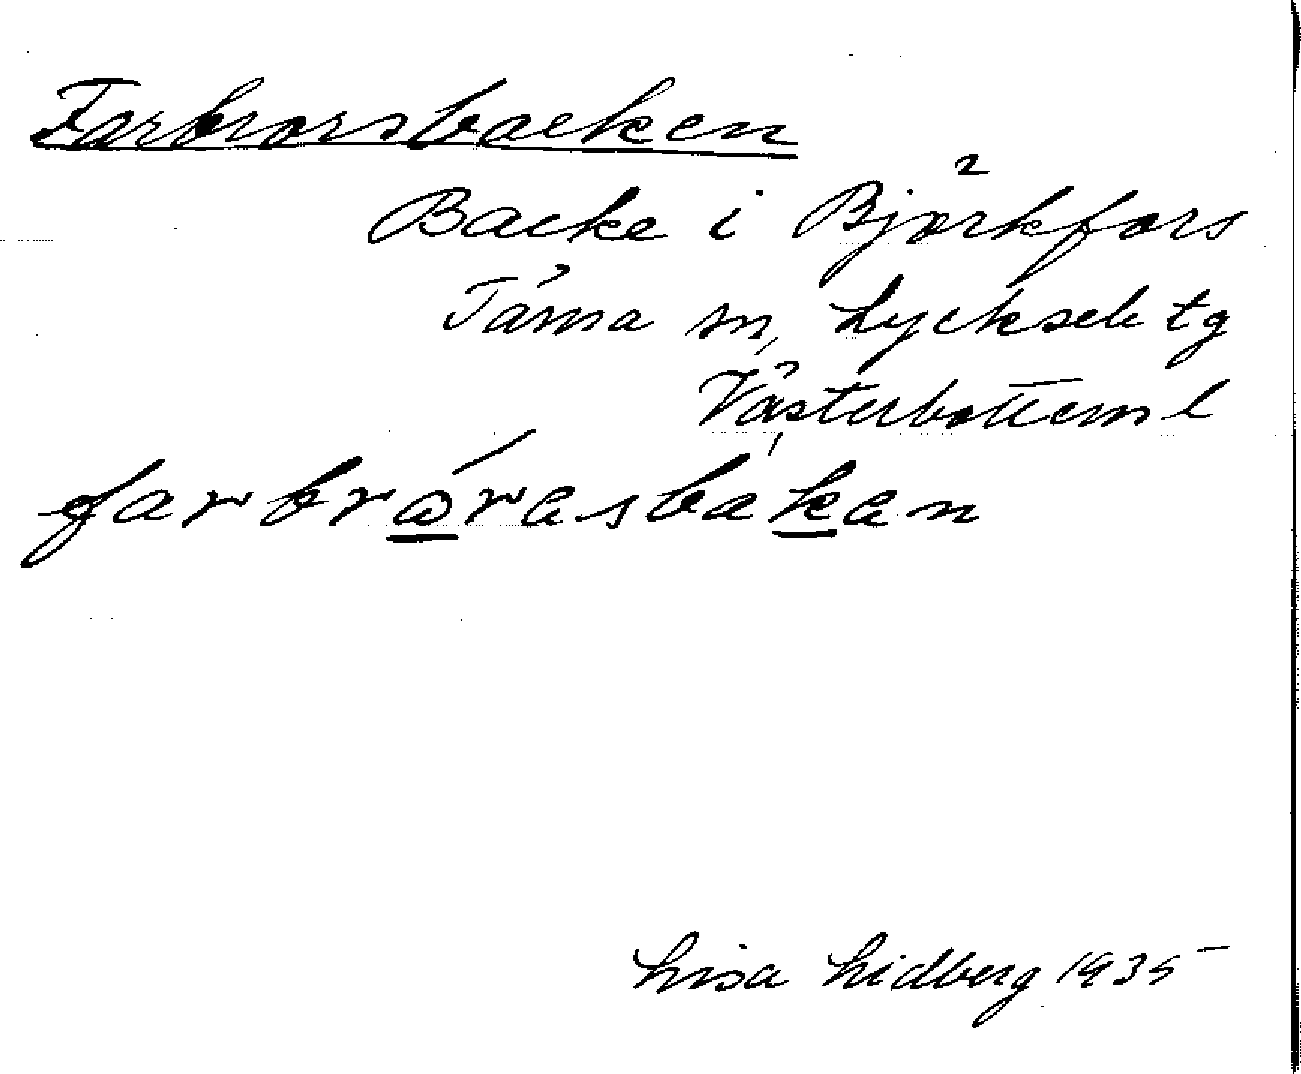 Farbrorsbacken
Backe i Björkfors
Tärna sn, Lycksele tg
Västerbottens l
Lisa Lidberg 1935